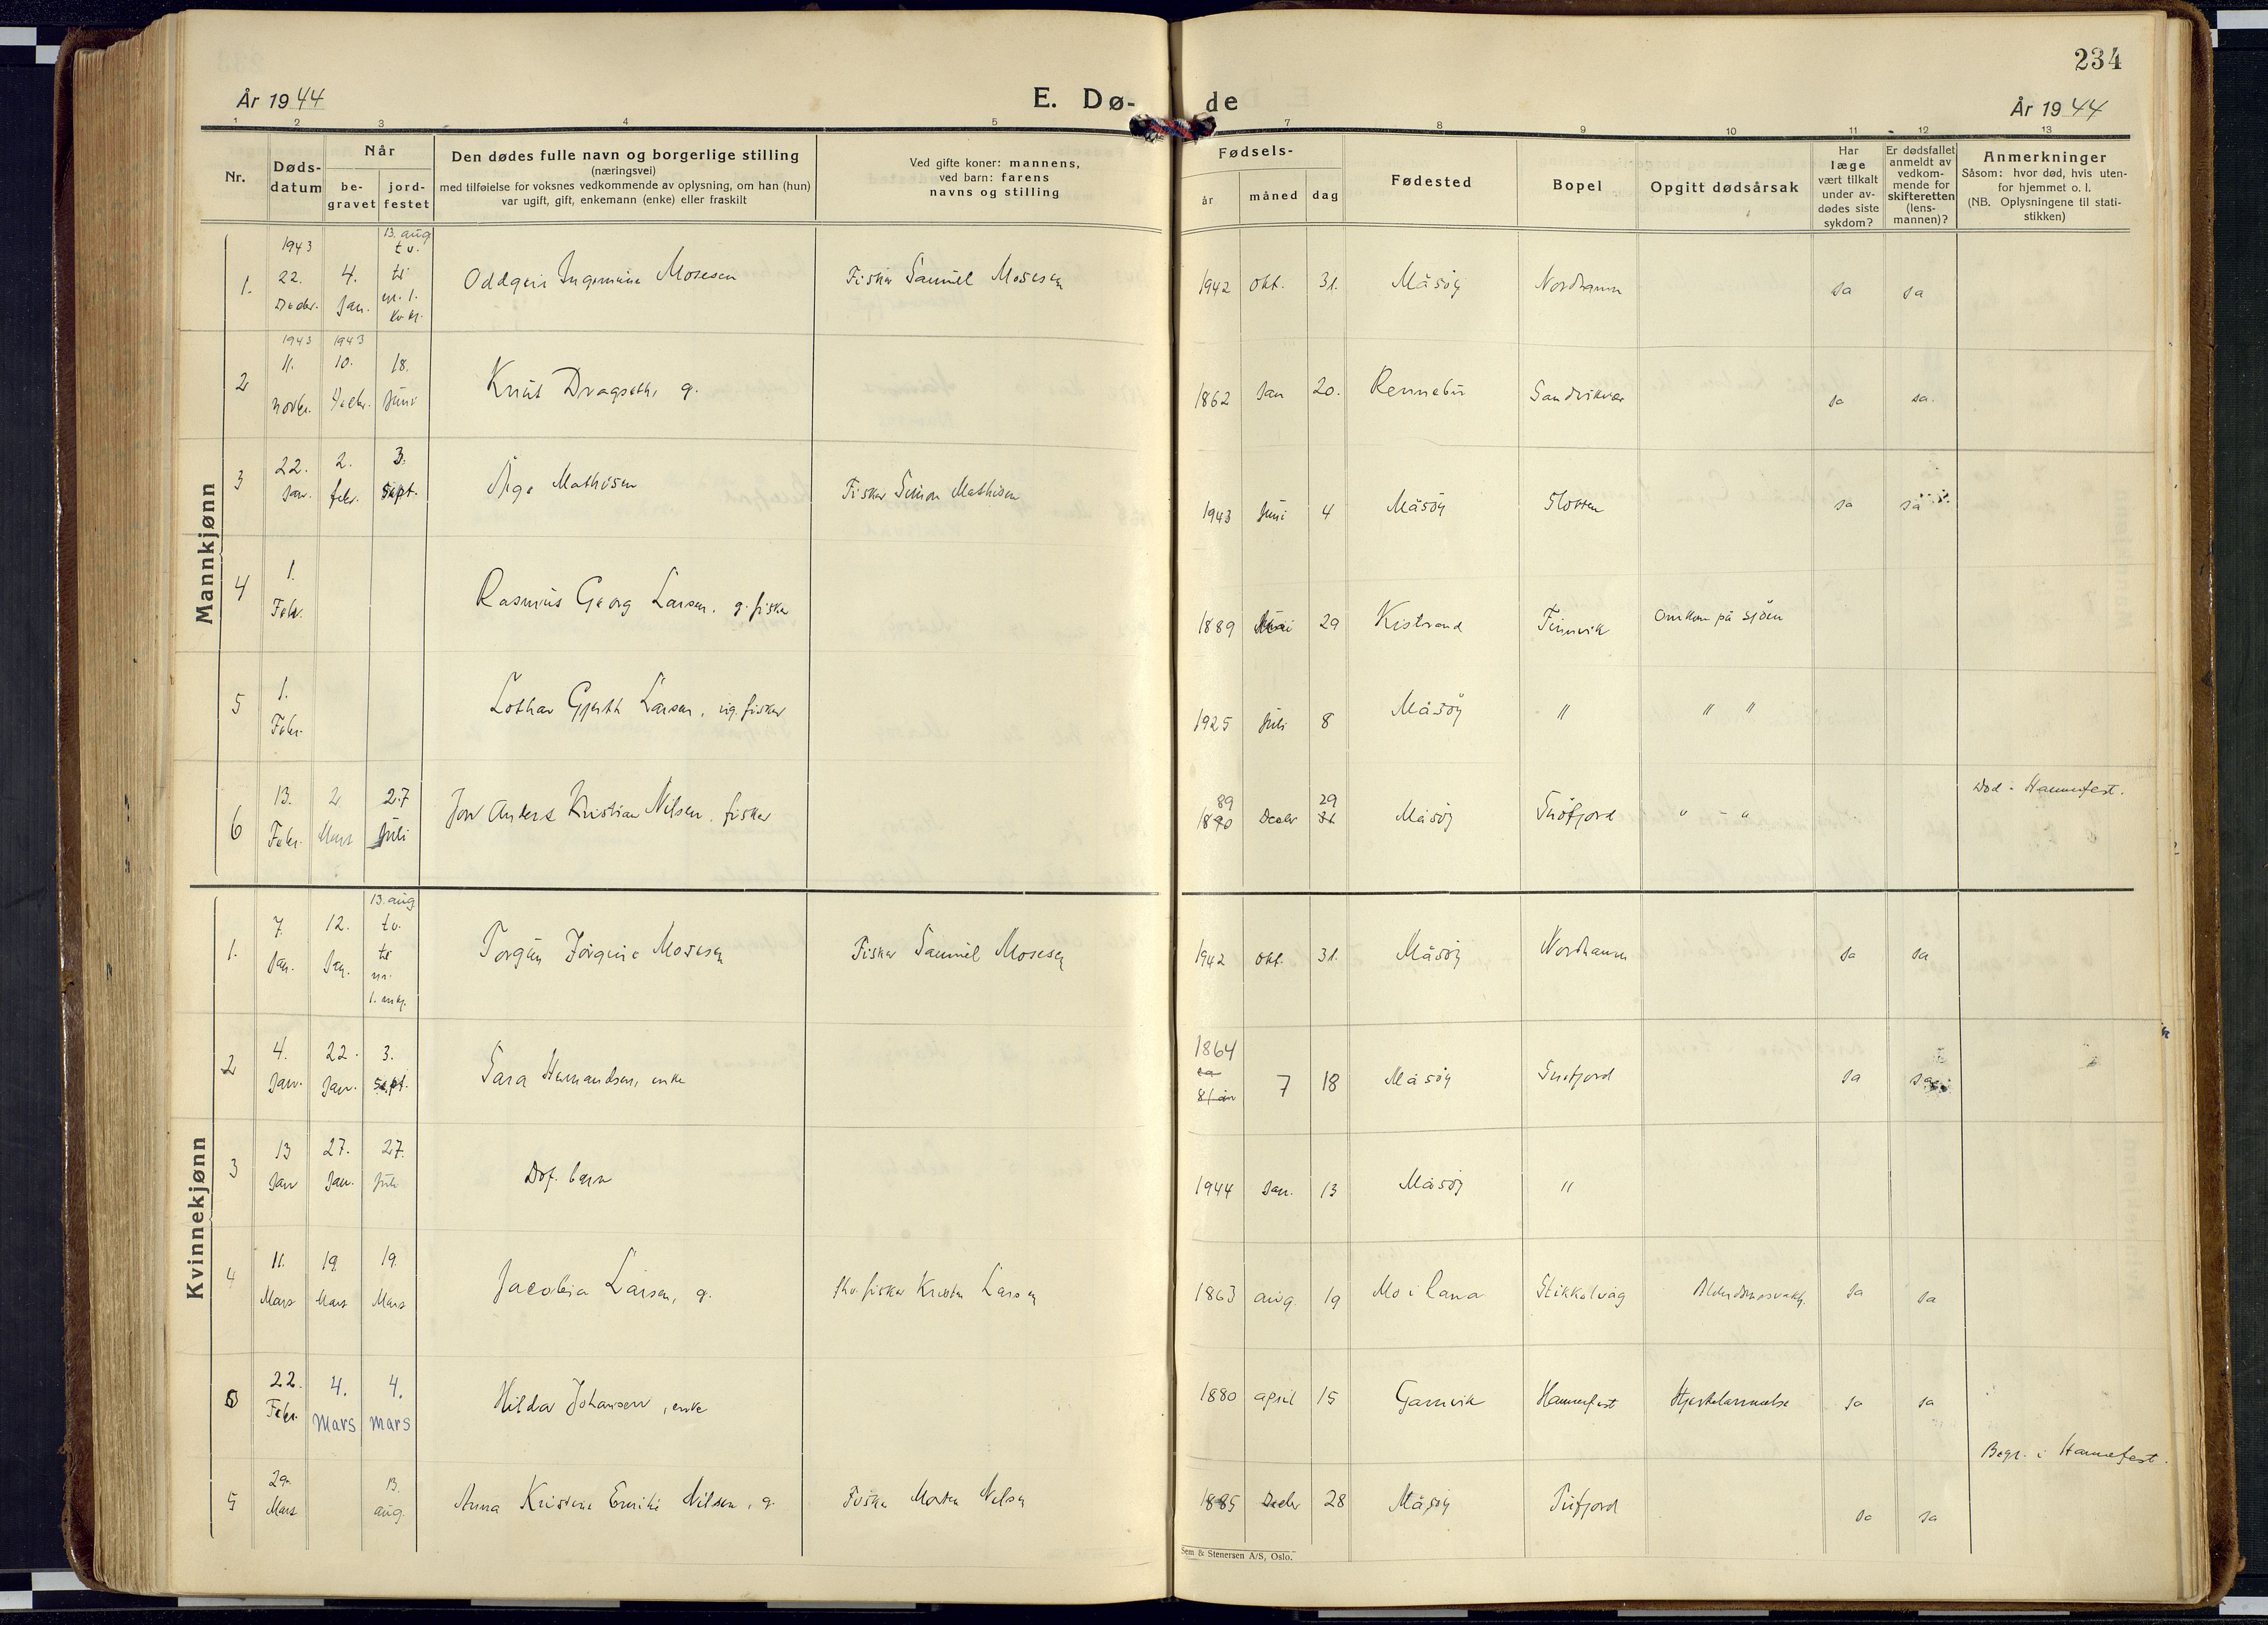 234
År 1944
E. Dø-
de
År 1944
1 2 3 4 5 7 8 9 10 11 12 13
Nr.
Døds-
datum
Når
be-
gravet
jord-
festet
Den dødes fulle navn og borgerlige stilling
(næringsvei)
med tilføielse for voksnes vedkommende av oplysning, om han (hun)
var ugift, gift, enkemann (enke) eller fraskilt
Ved gifte koner: mannens,
ved barn: farens
navns og stilling
Fødsels-
år måned dag
Fødested
Bopel
Opgitt dødsårsak
Har
læge
vært tilkalt
under av-
dødes siste
sykdom?
Er dødsfallet
anmeldt av
vedkom-
mende for
skifteretten
(lens-
mannen)?
Anmerkninger
Såsom: hvor død, hvis uten-
for hjemmet o. l.
(NB. Oplysningene til stati-
stikken)
Mannkjønn
1. 1943 22. Decbr. 4. Jan. 13. aug t.v. til nr. 1. kv.kj. Oddgeir Ingemann Mosesen Fisker Samuel Mosesen 1942 okt. 31. Måsøy Nordhamn Ja Ja
2 1943 11. novbr. 1943 10. Decbr. 18. Juni Knut Dragseth, g. 1862 Jan 20. Rennebu Sandvikvær Ja Ja.
3 22. Jan. 2. febr. 3. Sept. Åge Mathisen Fisker Simon Mathisen 1943 Juni 4 Måsøy Slotten Ja Ja
4 1. Febr. Rasmus Georg Larsen. g. fisker 1889 Mai 29 Kistrand Finnvik Omkom på sjøen
5 1. Febr. Lothar Gjerth Larsen, ug. fisker 1925 Juli 8 Måsøy " " "
6 13. Febr. 2 Mars 27 Juli Jon Anders Kristian Nilsen, fisker 89 1890 Decbr 29 31 Måsøy Snøfjord " - " Død i Hammerfest.
Kvinnekjønn
1. 7. Jan. 12. Jan. 13. aug t.v. til nr. 1. mkj. Torgun Jørgine Mosesen Fisker Samuel Mosesen 1942 okt. 31. Måsøy Nordhamn Ja Ja
2 4. Jan. 22. Jan. 3. Sept. Sara Hermandsen, enke 1864 ca 81 år 7 18 Måsøy Snøfjord Ja Ja
3 13 Jan 27. Jan. 27. Juli Døf. barn 1944 Jan. 13 Måsøy "
4 11. Mars 19 Mars 19. Mars Jacobia Larsen, g. fhv. fisker Kristen Larsen 1863 aug. 19 Mo i Rana Stikkelvåg Alderdomssvakh. Ja Ja
6 22. Febr. 4. Mars 4. Mars Hilda Johansen, enke 1880 april 15 Gamvik Hammerfest Hjertelammelse Ja Ja
Begr. i Hammerfest.
5 29. Mars 13. aug. Anna Kristine Emilie Nilsen, g. Fisker Morten Nilsen 1885 Decbr 28 Måsøy Tufjord Ja Ja
Sem & Stenersen A/S, Oslo.